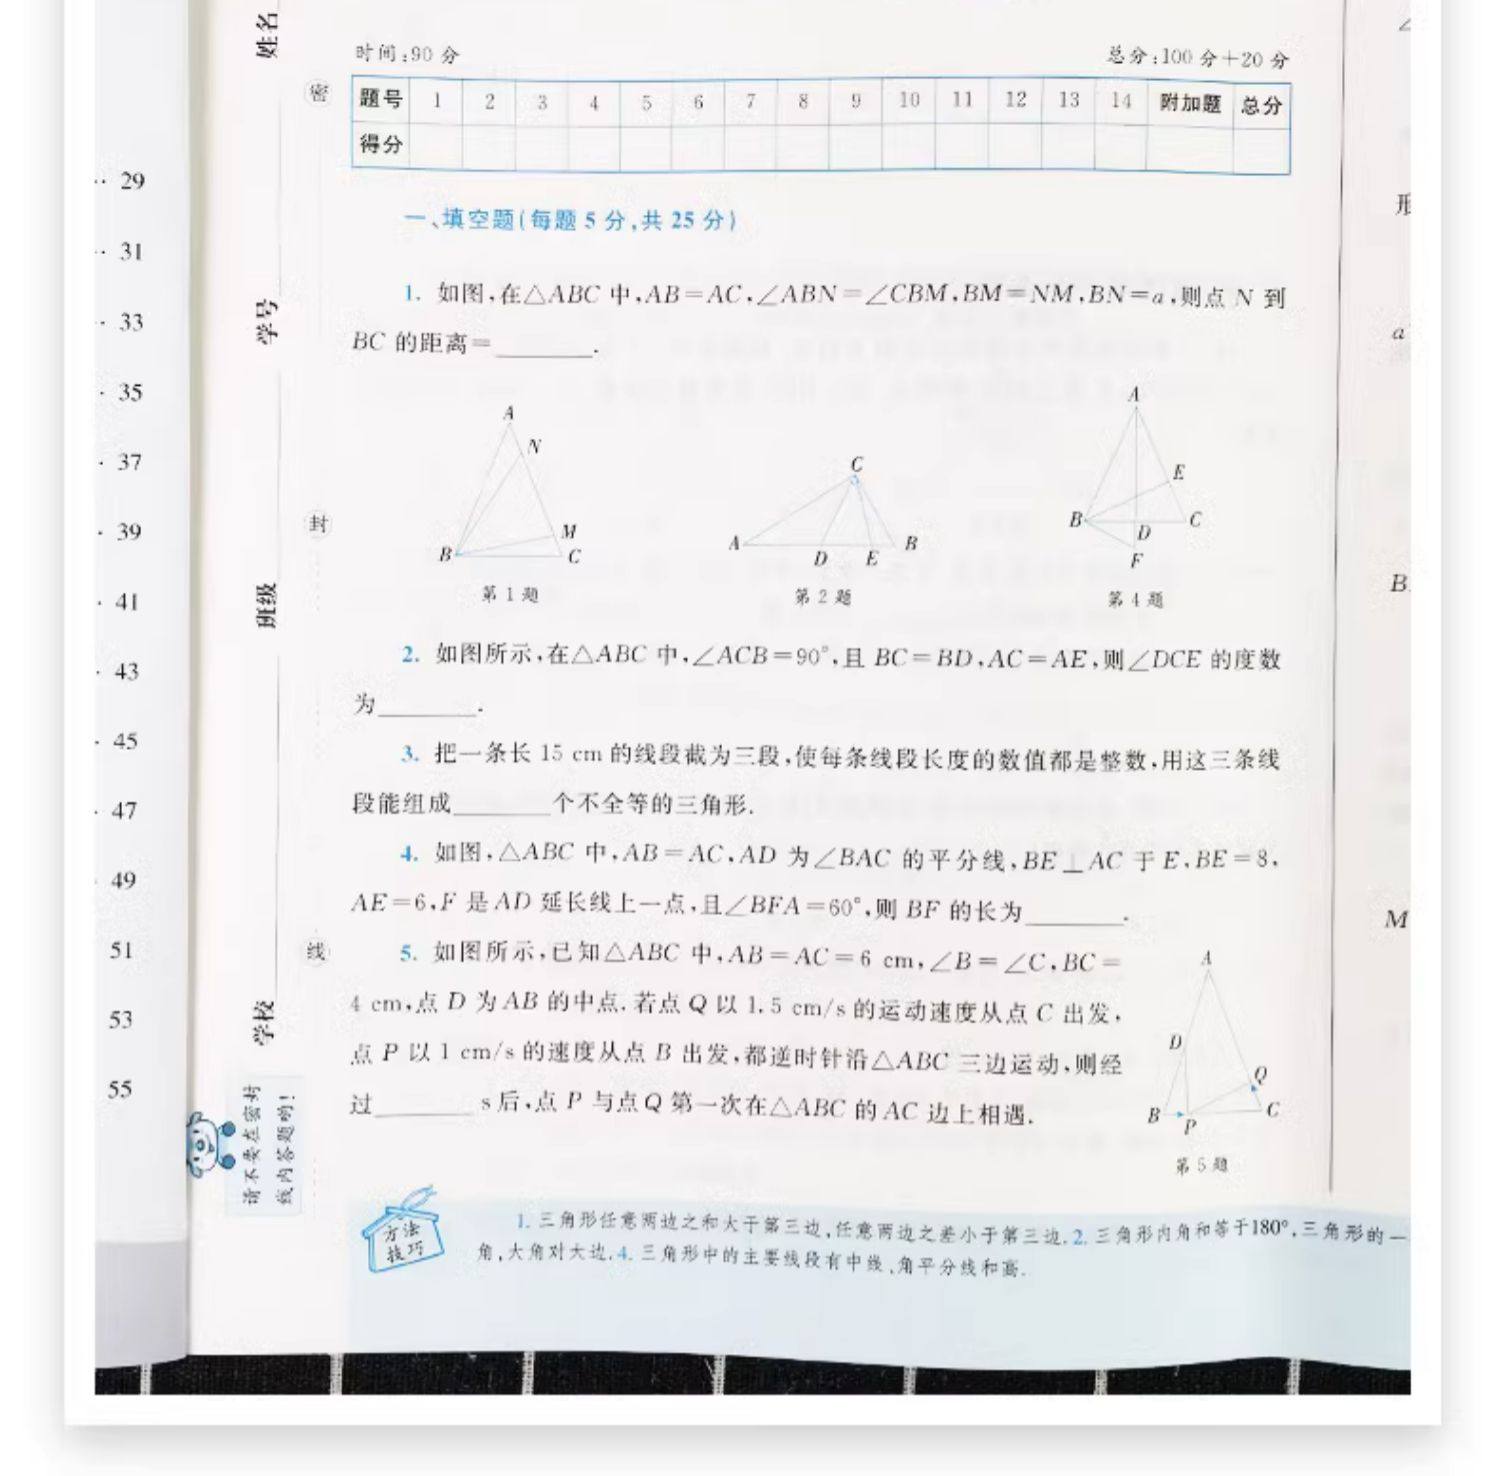 姓名
学号
班级
学校
请不要在密封
线内答题哟!
密
封
线
29
31
33
35
37
39
41
43
45
47
49
51
53
55
时间:90 分
总分:100 分+20 分
题号 1 2 3 4 5 6 7 8 9 10 11 12 13 14 附加题 总分
得分
一、填空题(每题 5 分,共 25 分)
1. 如图,在△ABC 中,AB=AC,∠ABN=∠CBM,BM=NM,BN=a,则点 N 到
BC 的距离=________.
A
N
M
B
C
第 1 题
C
A
D
E
B
第 2 题
A
E
B
D
C
F
第 4 题
2. 如图所示,在△ABC 中,∠ACB=90°,且 BC=BD,AC=AE,则∠DCE 的度数
为________.
3. 把一条长 15 cm 的线段截为三段,使每条线段长度的数值都是整数,用这三条线
段能组成________个不全等的三角形.
4. 如图,△ABC 中,AB=AC,AD 为∠BAC 的平分线,BE⊥AC 于 E,BE=8,
AE=6,F 是 AD 延长线上一点,且∠BFA=60°,则 BF 的长为________.
5. 如图所示,已知△ABC 中,AB=AC=6 cm,∠B=∠C,BC=
4 cm,点 D 为 AB 的中点.若点 Q 以 1.5 cm/s 的运动速度从点 C 出发,
点 P 以 1 cm/s 的速度从点 B 出发,都逆时针沿△ABC 三边运动,则经
过________s 后,点 P 与点 Q 第一次在△ABC 的 AC 边上相遇.
A
D
Q
B
P
C
第 5 题
方法
技巧
1. 三角形任意两边之和大于第三边,任意两边之差小于第三边.2. 三角形内角和等于180°,三角形的一
角,大角对大边.4. 三角形中的主要线段有中线、角平分线和高.
a
B.
M